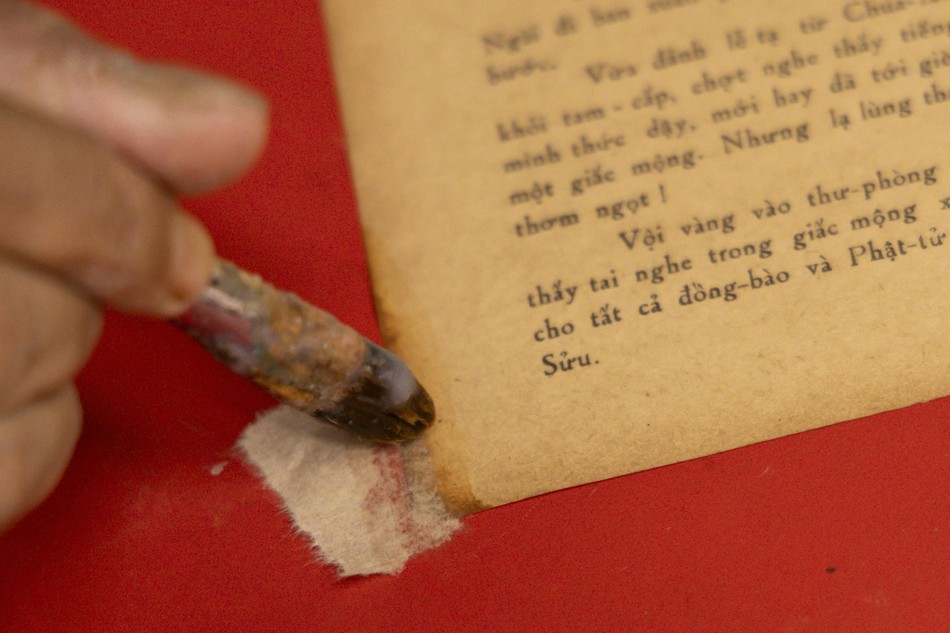 Ngài đi ban
bước. Vừa đảnh lễ tạ từ Chùa
khỏi tam-cấp, chợt nghe thấy tiếng
mình thức dậy, mới hay đã tới giờ
một giấc mộng. Nhưng lạ lùng
thơm ngọt !
Vội vàng vào thư-phòng
thấy tai nghe trong giấc mộng
cho tất cả đồng-bào và Phật-tử
Sửu.